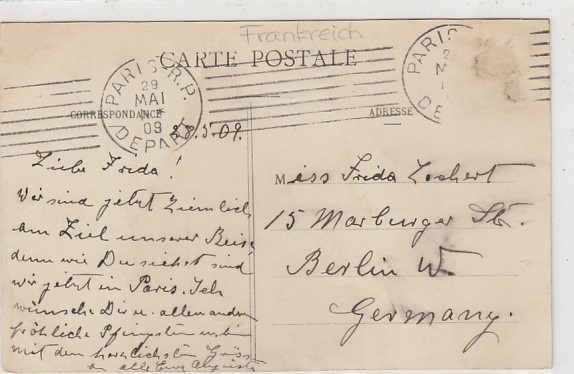 Frankreich
CARTE POSTALE
PARIS R.P.
29
MAI
09
DEPART
PARIS
DE
CORRESPONDANCE
ADRESSE
28.5.09.
Liebe Frida!
Wir sind jetzt ziemlich
am Ziel unserer Reise,
denn wie Du siehst sind
wir jetzt in Paris. Ich
wünsche Dir u. allen andern
fröhliche Pfingsten u. bin
mit den herzlichsten Grüss
an alle Eure Auguste
Miss Frida Lochert
15 Marburger Str.
Berlin W.
Germany.